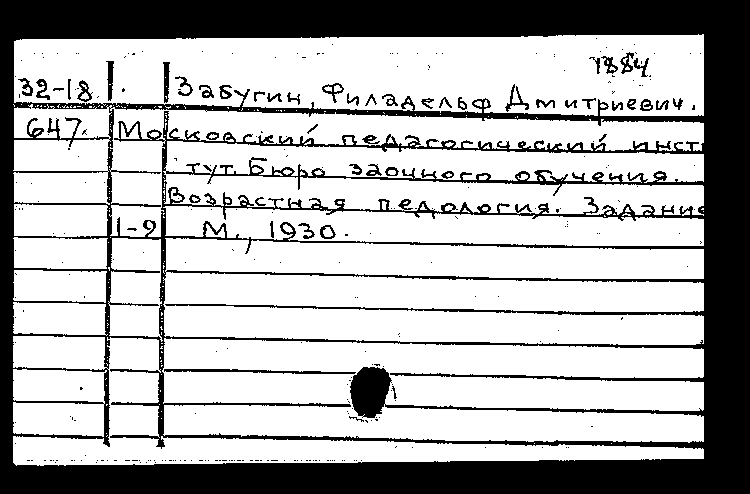 1884
32-18 Забугин, Филадельф Дмитриевич.
647. Московский педагогический инсти
тут. Бюро заочного обучения.
Возрастная педология. Задание
1-9 М., 1930.